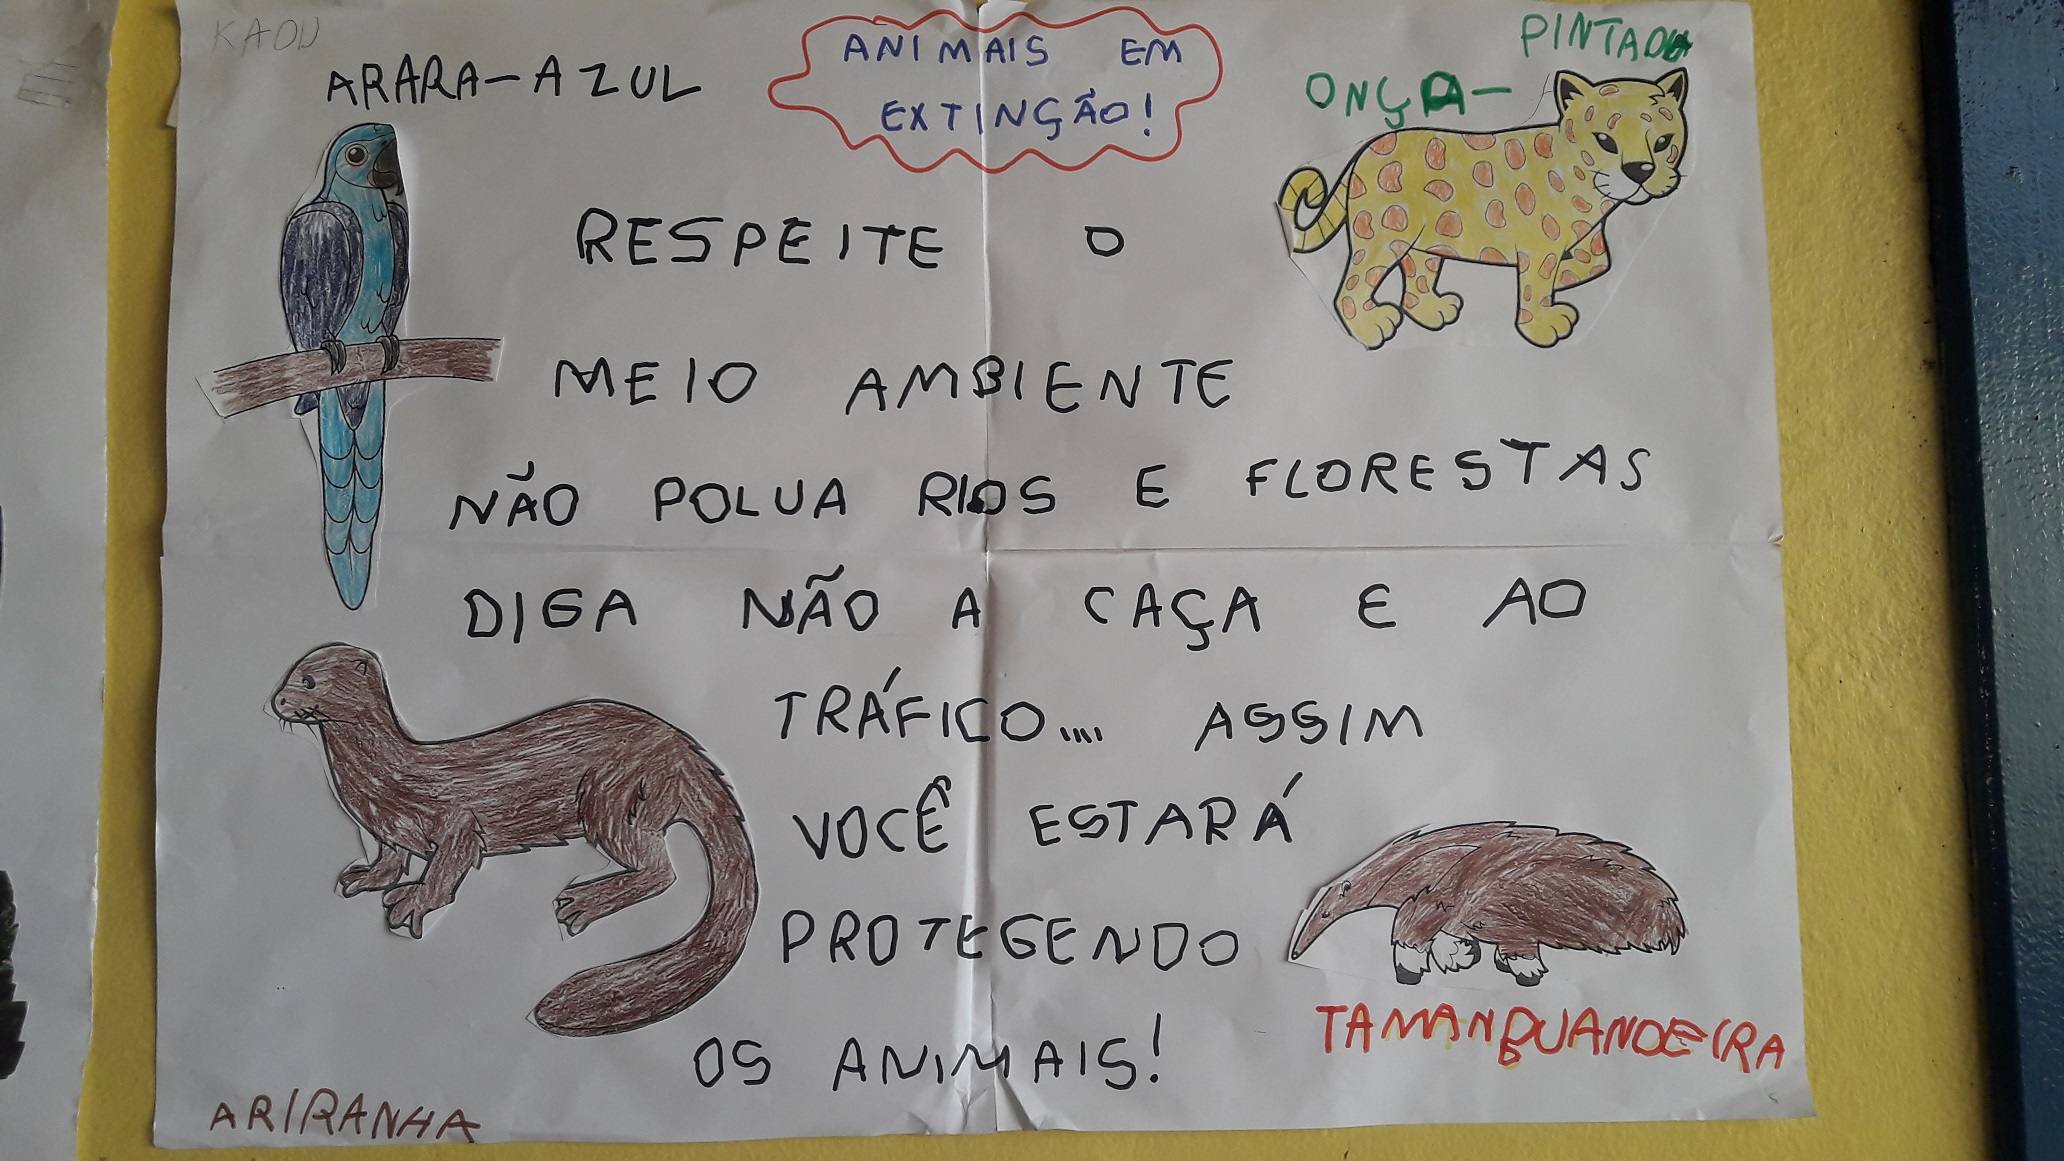 ARARA-AZUL
ANIMAIS EM
EXTINÇÃO!
PINTADA
ONÇA-
RESPEITE O
MEIO AMBIENTE
NÃO POLUA RIOS E FLORESTAS
DIGA NÃO A CAÇA E AO
TRÁFICO.... ASSIM
VOCÊ ESTARÁ
PROTEGENDO
OS ANIMAIS!
TAMANBUANDEIRA
ARIRANHA